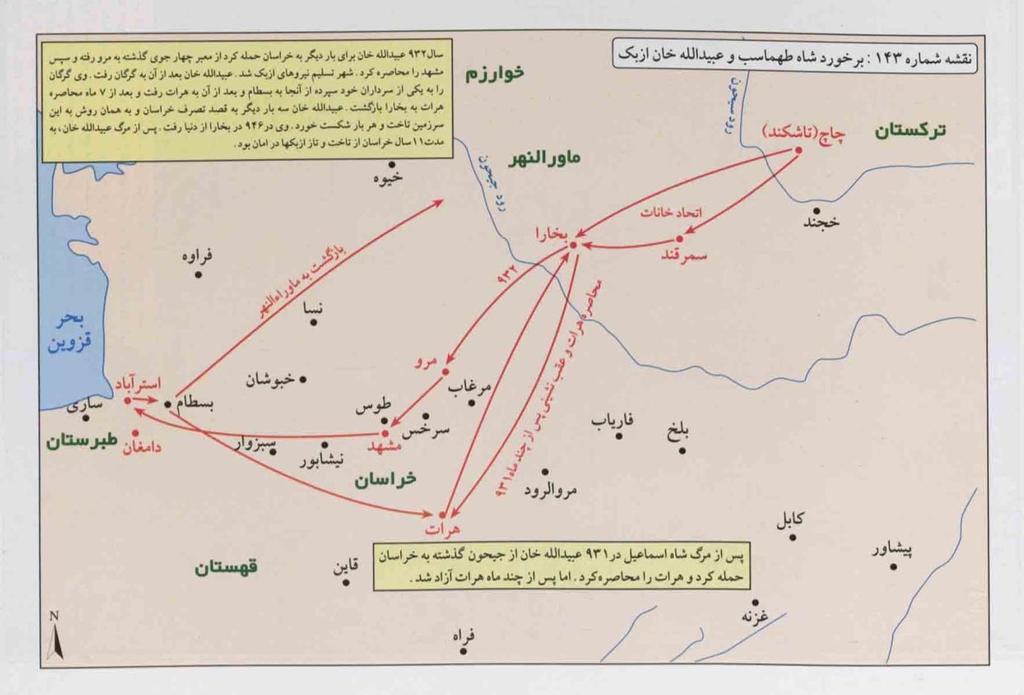 نقشه شماره ۱۴۳ : برخورد شاه طهماسب و عبیدالله خان ازبک
سال۹۳۲ عبیدالله خان برای بار دیگر به خراسان حمله کرد از معبر چهار جوی گذشته به مرو رفته و سپس
مشهد را محاصره کرد . شهر تسلیم نیروهای ازبک شد . عبیدالله خان بعد از آن به گرگان رفت . وی گرگان
را به یکی از سرداران خود سپرده از آنجا به بسطام و بعد از آن به هرات رفت و بعد از ۷ ماه محاصره
هرات به بخارا بازگشت . عبیدالله خان سه بار دیگر به قصد تصرف خراسان و به همان روش به این
سرزمین تاخت و هر بار شکست خورد . وی در ۹۴۶ در بخارا از دنیا رفت . پس از مرگ عبیدالله خان، به
مدت۱۱ سال خراسان از تاخت و تاز ازبکها در امان بود .
خوارزم
رود سیحون
ترکستان
چاچ(تاشکند)
ماورالنهر
رود جیحون
خیوه
اتحاد خانات
خجند
بخارا
سمرقند
فراوه
بازگشت به ماوراءالنهر
۹۳۲
محاصره هرات و عقب نشینی پس از چند ماه ۹۳۱
نسا
بحر
قزوین
مرو
خبوشان
استرآباد
مرغاب
ساری
بسطام
طوس
سرخس
فاریاب
بلخ
طبرستان
دامغان
سبزوار
نیشابور
مشهد
خراسان
مروالرود
هرات
کابل
پیشاور
قهستان
قاین
پس از مرگ شاه اسماعیل در ۹۳۱ عبیدالله خان از جیحون گذشته به خراسان
حمله کرد و هرات را محاصره کرد . اما پس از چند ماه هرات آزاد شد .
غزنه
فراه
N